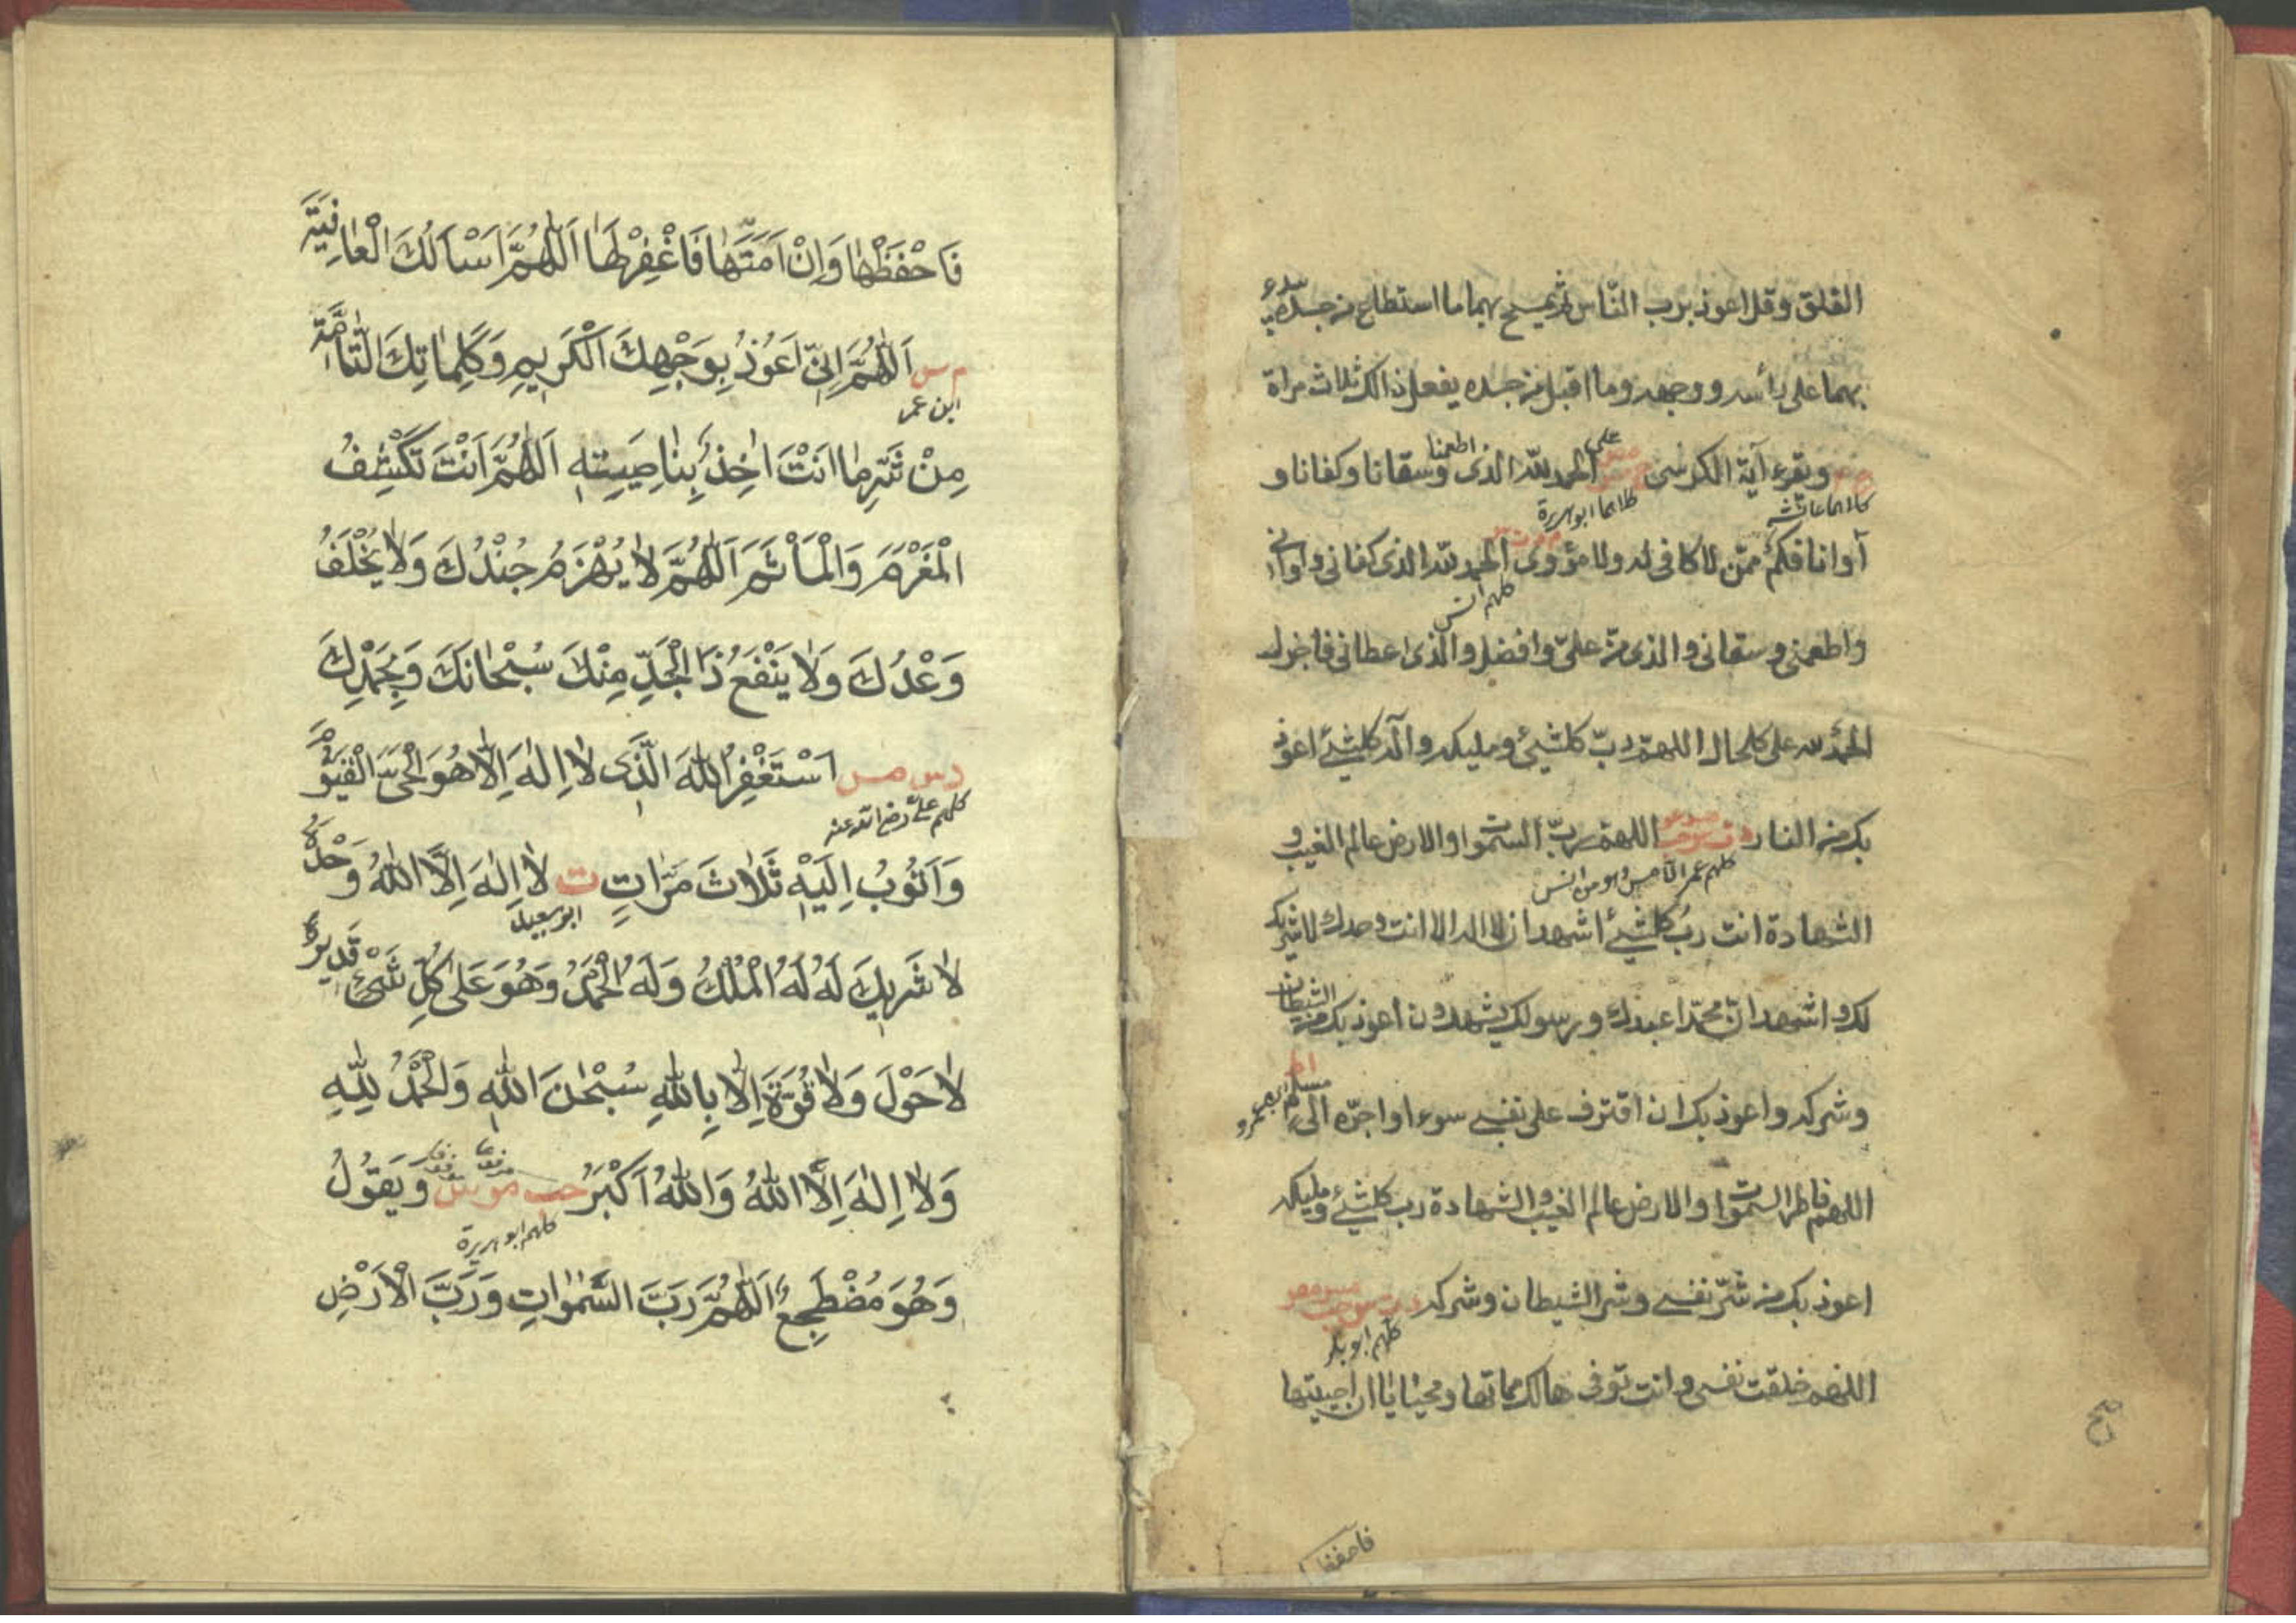 الفلق وقل اعوذ برب النّاس ثم يمسح بهما ما استطاع من جسده يبدء
بهما على رأسه ووجهه وما اقبل من جسده يفعل ذالك ثلاث مراة
ويقرء آية الكرسى الحمد للّه الذى اطعمنا وسقانا وكفانا و
على
كلاهما عائشه
كلاهما ابوهريرة
آوانا فكم ممّن لا كافى له ولا مؤوى الحمد للّه الذى كفانى واوانى
كلهم انس
واطعمنى وسقانى والذى من علىّ وافضل والذى اعطانى فاجزل
الحمد لله على كلحال اللهمّ ربّ كلشيئ ومليكه واله كلشيئ اعوذ
بك من النار اللهم ربّ السموات والارض عالم الغيب و
كلهم عمر الا
الشهادة انت ربّ كلشيئ اشهد ان لا اله الا انت وحدك لا شريك
لك واشهد انّ محمّدا عبدك ورسولك يشهدون اعوذ بك من الشيطان
وشركه واعوذ بك ان اقترف على نفسى سوءا او اجرّه الى مسلم
اللهم فاطر السموات والارض عالم الغيب والشهادة رب كلشيئ ومليكه
اعوذ بك من شرّ نفسى وشر الشيطان وشركه
كلهم ابو بكر
اللهم خلقت نفسى وانت توفى هالك مماتها ومحياها ان احييتها
فاحفظها
فَاحْفَظْهٰا وَاِنْ اَمَتَّهٰا فَاغْفِرْلَهٰا اَللّٰهُمَّ اَسْاَلُكَ الْعٰافِيَّةَ
م س اَللّٰهُمَّ اِنّى اَعُوْذُ بِوَجْهِكَ الْكَرِيمِ وَكَلِمٰاتِكَ التّٰامَّةِ
ابن عمر
مِنْ شَرِّ مٰا اَنْتَ اٰخِذٌ بِنٰاصِيَتِهِ اَللّٰهُمَّ اَنْتَ تَكْشِفُ
الْمَغْرَمَ وَالْمَأْثَمَ اَللّٰهُمَّ لاٰ يُهْزَمُ جُنْدُكَ وَلاٰ يُخْلَفُ
وَعْدُكَ وَلاٰ يَنْفَعُ ذَا الْجَدِّ مِنْكَ سُبْحٰانَكَ وَبِحَمْدِكَ
د س مص اَسْتَغْفِرُ اللّٰهَ الَّذى لاٰ اِلٰهَ اِلّاٰ هُوَ الْحَىَّ الْقَيُّوْمَ
كلهم علىّ رضى الله عنه
وَاَتُوْبُ اِلَيْهِ ثَلاٰثَ مَرّٰاتٍ ت لاٰ اِلٰهَ اِلَّا اللّٰهُ وَحْدَهُ
ابو سعيد
لاٰ شَرِيكَ لَهُ لَهُ الْمُلْكُ وَلَهُ الْحَمْدُ وَهُوَ عَلٰى كُلِّ شَىْءٍ قَدِيْرٌ
لاٰ حَوْلَ وَلاٰ قُوَّةَ اِلّاٰ بِاللّٰهِ سُبْحٰنَ اللّٰهِ وَالْحَمْدُ لِلّٰهِ
وَلاٰ اِلٰهَ اِلَّا اللّٰهُ وَاللّٰهُ اَكْبَرُ حب مو س وَيَقُوْلُ
كلهم ابو هريرة
وَهُوَ مُضْطَجِعٌ اَللّٰهُمَّ رَبَّ السَّمٰوٰاتِ وَرَبَّ الْاَرْضِ